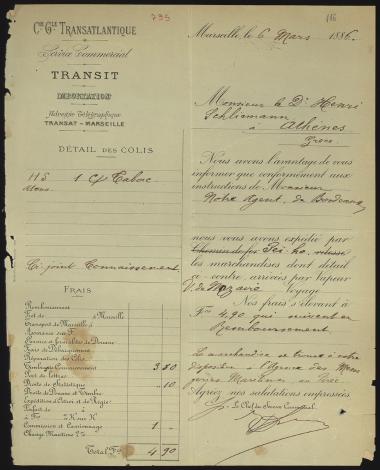 Cie Gle Transatlantique
Service Commercial
TRANSIT
IMPORTATION
Adresse Télégraphique
TRANSAT - MARSEILLE
DÉTAIL DES COLIS
H S 1 Cs/ Tabac
Ci-joint Connaissement
FRAIS
Remboursement
Fret de à Marseille
Transport de Marseille à
Douanes et formalités de Douane
Frais de Débarquement
Réparation des Colis
Timbrage Connaissement 3 80
Port de lettres
Droits de Statistique 10
Droits de Douane et Timbre
Expédition d'Octroi et de Régie
Forfait de à
Commission et Camionnage 1
Change Maritime
Total Frs 4 90
795
116
Marseille, le 6 Mars 1886.
Monsieur le Dr Henri
Schliemann
à Athènes
Grèce
Nous avons l'avantage de vous
informer que conformément aux
instructions de Monsieur
Notre Agent de Bordeaux
nous vous avons expédié par
Chemin de fer Peï-ho
les marchandises dont détail
ci-contre, arrivées par vapeur
V. de Nazaire voyage
Nos frais s'élevant à
Frs 4,90 qui suivent en
Remboursement.
La marchandise se trouve à votre
disposition à l'Agence des Messageries
Maritimes au Pirée
Agréez nos salutations empressées
Le Chef du Service Commercial